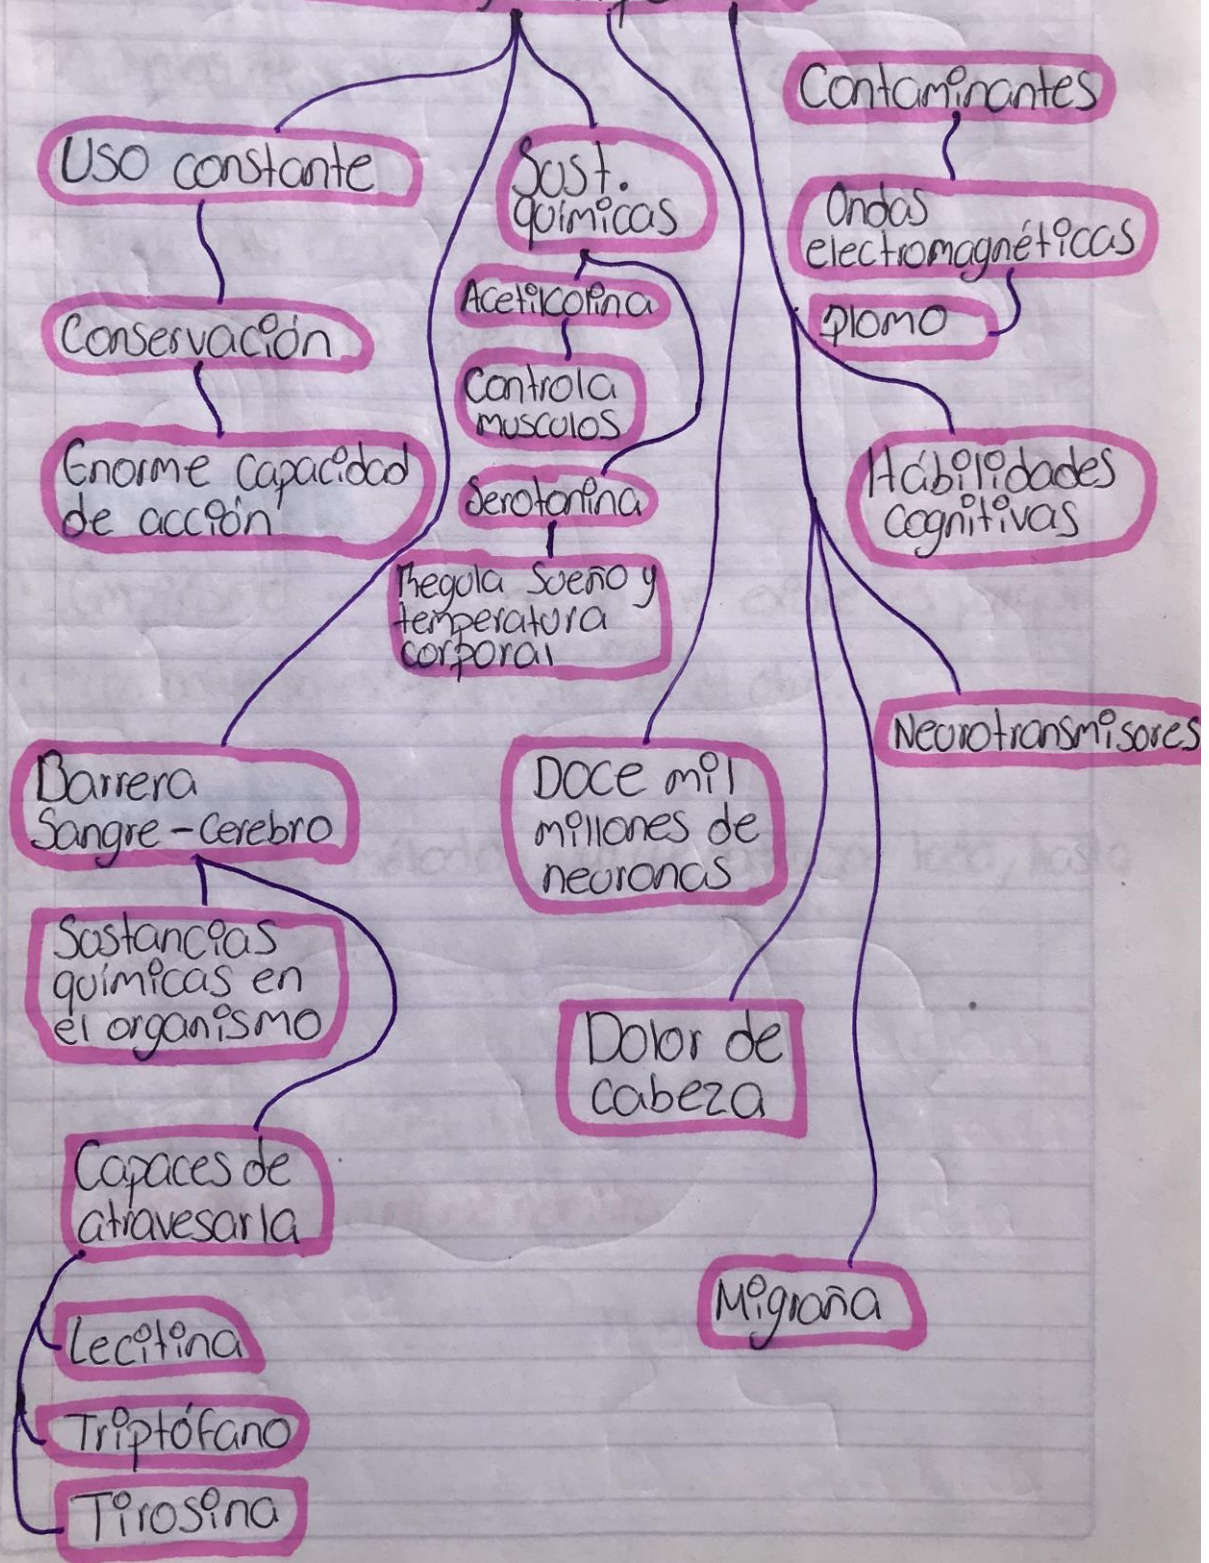 Uso constante
Conservación
Enorme capacidad
de acción
Sust.
químicas
Acetilcolina
Controla
musculos
Serotonina
Regula sueño y
temperatura
corporal
Contaminantes
Ondas
electromagnéticas
plomo
Hábilidades
Cognitivas
Neurotransmisores
Barrera
Sangre-Cerebro
Sustancias
químicas en
el organismo
Capaces de
atravesarla
Lecitina
Triptófano
Tirosina
Doce mil
millones de
neuronas
Dolor de
cabeza
Migraña